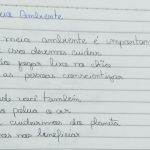 Meio Ambiente
meio ambiente é important
isso devemos cuidar
jogar lixo no chão
as pessoas conscientizar
você também
polua o ar
cuidarmos do planeta
nos beneficiar